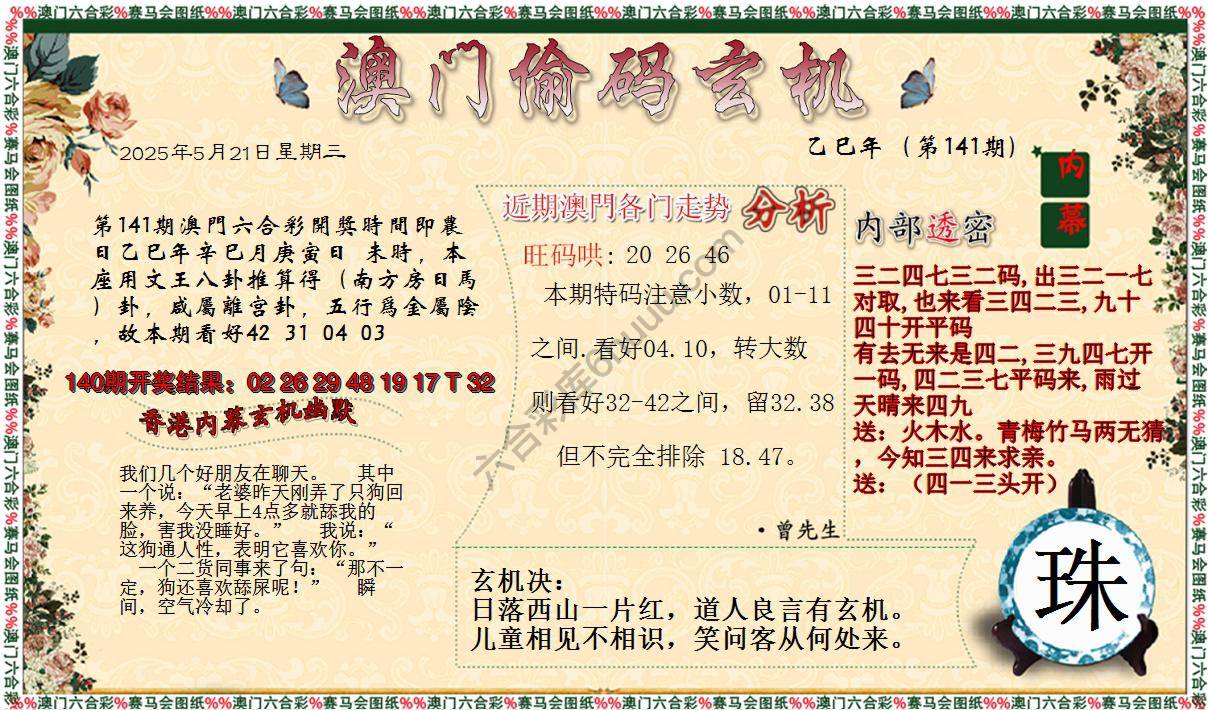 %%澳门六合彩%赛马会图纸%%澳门六合彩%赛马会图纸%%澳门六合彩%赛马会图纸
澳门偷码玄机
2025年5月21日星期三
乙巳年（第141期）
内幕
第141期澳門六合彩開獎時間即農
日乙巳年辛巳月庚寅日 未時，本
座用文王八卦推算得（南方房日馬
）卦，咸屬離宫卦，五行爲金屬陰
，故本期看好42 31 04 03
140期开奖结果：02 26 29 48 19 17 T 32
香港内幕玄机幽默
我们几个好朋友在聊天。 其中
一个说：“老婆昨天刚弄了只狗回
来养，今天早上4点多就舔我的
脸，害我没睡好。” 我说：“
这狗通人性，表明它喜欢你。”
一个二货同事来了句：“那不一
定，狗还喜欢舔屎呢！” 瞬
间，空气冷却了。
近期澳門各门走势 分析
旺码哄: 20 26 46
本期特码注意小数，01-11
之间.看好04.10，转大数
则看好32-42之间，留32.38
但不完全排除 18.47。
·曾先生
内部透密
三二四七三二码,出三二一七
对取,也来看三四二三,九十
四十开平码
有去无来是四二,三九四七开
一码,四二三七平码来,雨过
天晴来四九
送：火木水。青梅竹马两无猜
，今知三四来求亲。
送：（四一三头开）
玄机决：
日落西山一片红，道人良言有玄机。
儿童相见不相识，笑问客从何处来。
珠